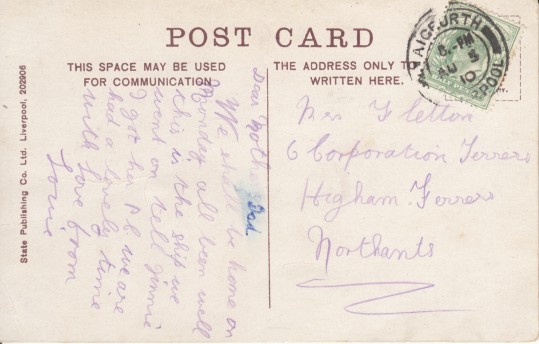 POST CARD
THIS SPACE MAY BE USED
FOR COMMUNICATION
THE ADDRESS ONLY TO
WRITTEN HERE.
State Publishing Co. Ltd. Liverpool, 202906
Dear Mother Dad
We shall be home on
Monday all been well
this is the ship we
went on tell Jinnie
I got her P.C. we are
had a lovely time
with love from
Mrs Fletton
6 Corporation Terrace
Higham Ferrers
Northants